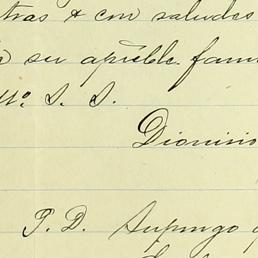 tras & con saludes
su aprêble. fami
Mº. S. S.
Dionisio
P. D. Supongo q